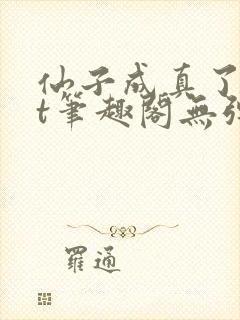 仙子成真了
t筆趣閣無
羅通